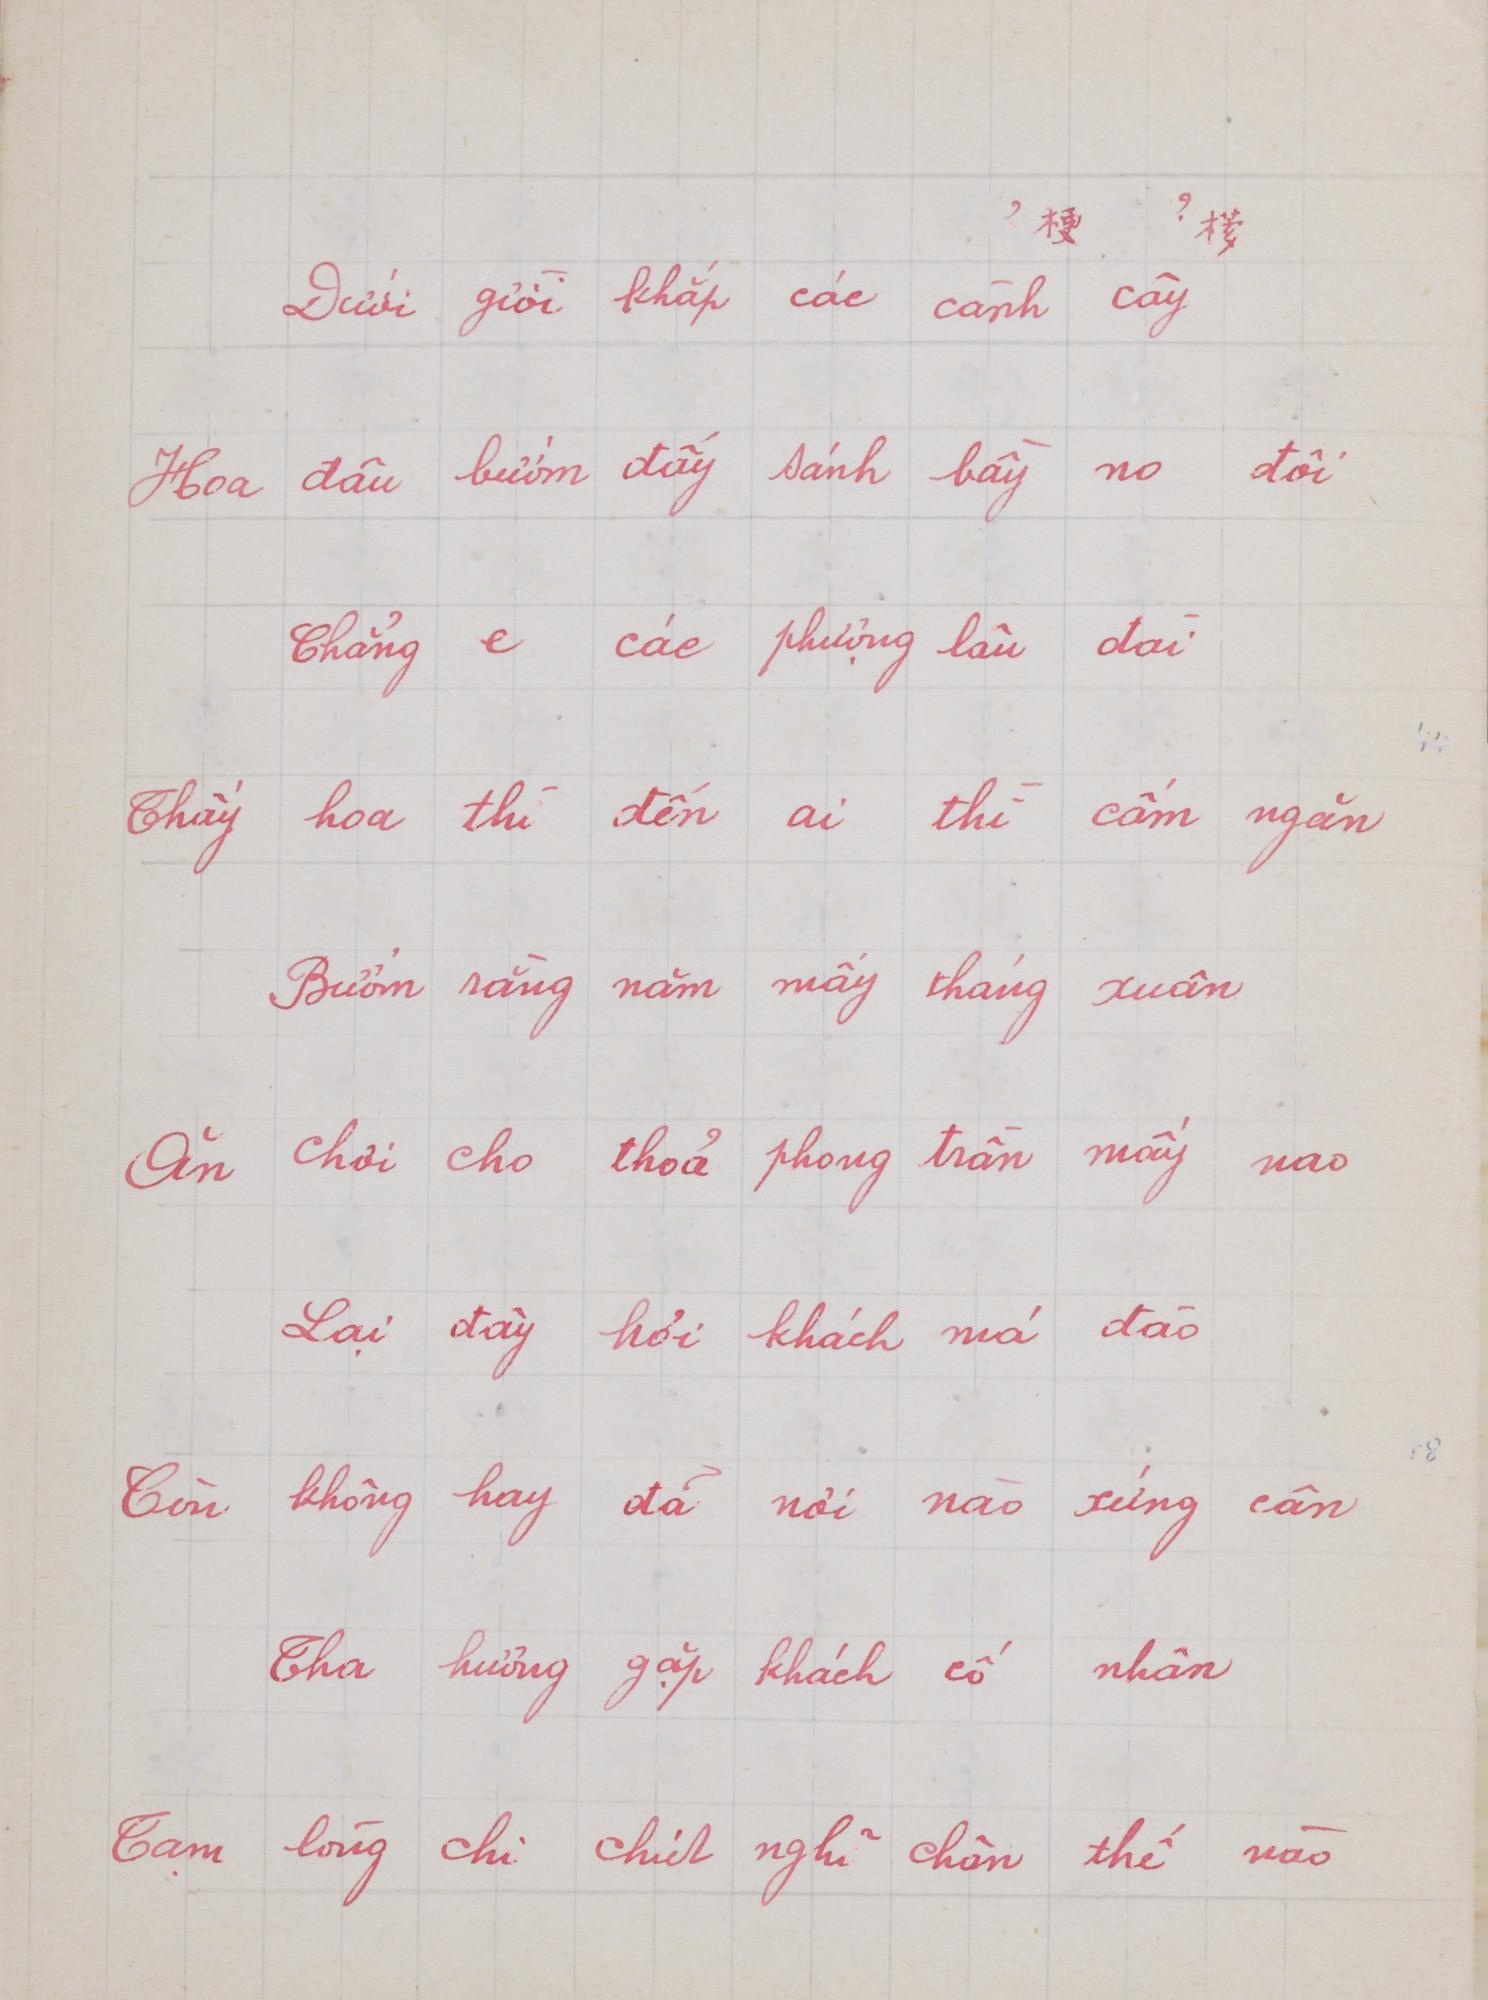 ? 梗 ?
Dưới giời khắp các cành cây
Hoa đâu bướm đấy sánh bầy no đôi
Chẳng e các phượng lâu đài
Thấy hoa thì đến ai thì cấm ngăn
Bướm rằng năm mấy tháng xuân
Ăn chơi cho thoả phong trần mấy nao
Lại đây hỡi khách má đào
Còn không hay đã nơi nào xứng cân
Tha hương gặp khách cố nhân
Tạm lòng chi chút nghĩ chân thế nào